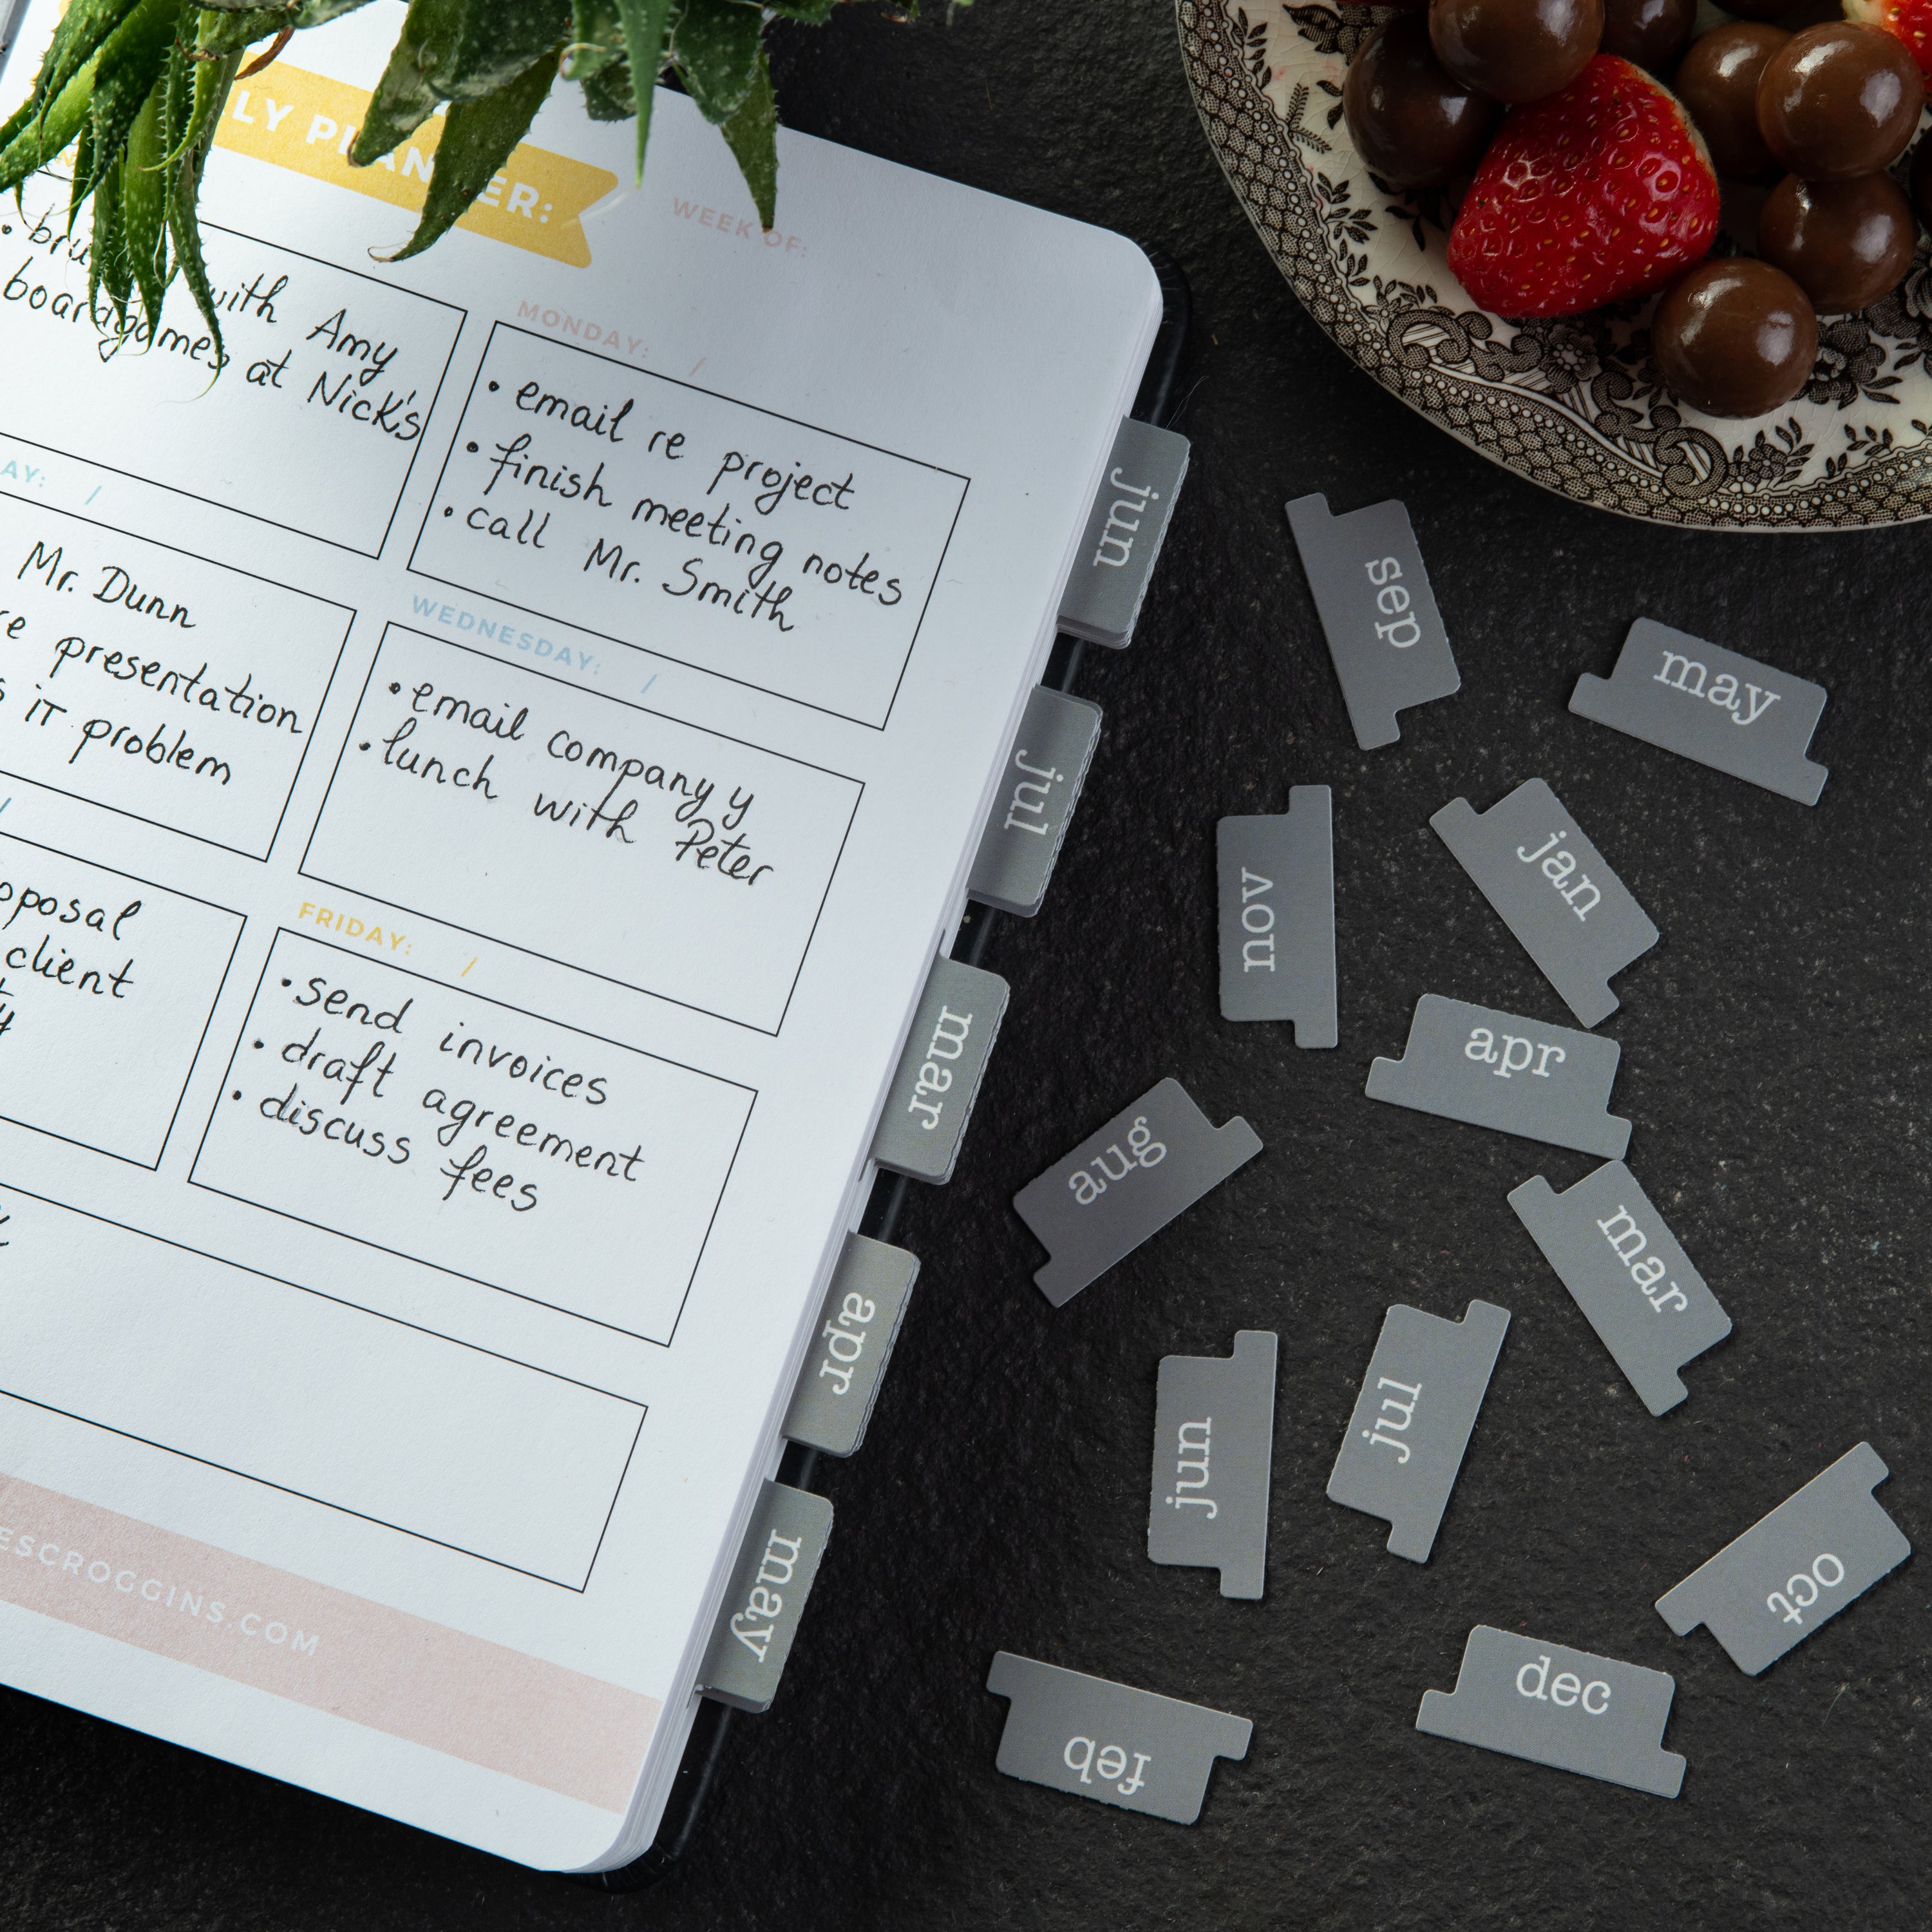 LY PLANNER:
WEEK OF:
with Amy
boardgames at Nick's
MONDAY: /
• email re project
• finish meeting notes
• call Mr. Smith
AY: /
Mr. Dunn
re presentation
s IT problem
WEDNESDAY: /
• email company y
• lunch with Peter
/
oposal
client
ty
FRIDAY: /
• send invoices
• draft agreement
• discuss fees
ESCROGGINS.COM
jun
jul
mar
apr
may
sep
may
nov
jan
apr
aug
mar
jun
jul
oct
feb
dec